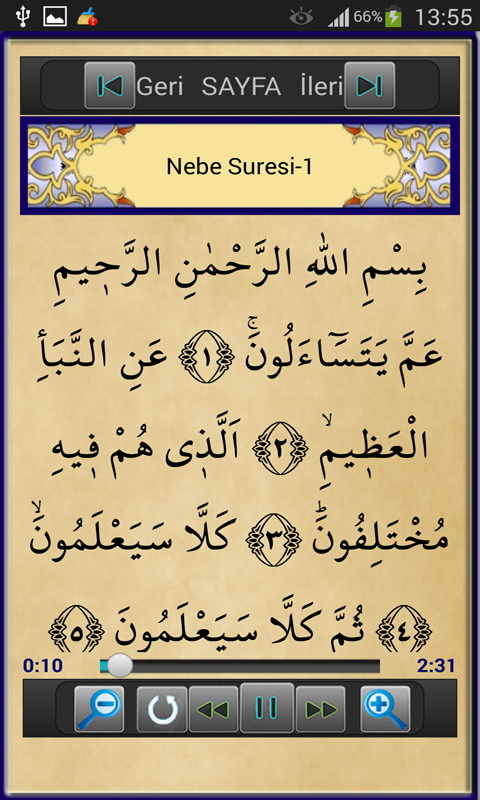 66% 13:55
Geri SAYFA İleri
Nebe Suresi-1
بِسْمِ اللهِ الرَّحْمٰنِ الرَّحٖيمِ
عَمَّ يَتَسَٓاءَلُونَۚ ﴿١﴾ عَنِ النَّبَأِ
الْعَظٖيمِۙ ﴿٢﴾ اَلَّذٖى هُمْ فٖيهِ
مُخْتَلِفُونَؕ ﴿٣﴾ كَلَّا سَيَعْلَمُونَۙ
﴿٤﴾ ثُمَّ كَلَّا سَيَعْلَمُونَ ﴿٥﴾
0:10 2:31